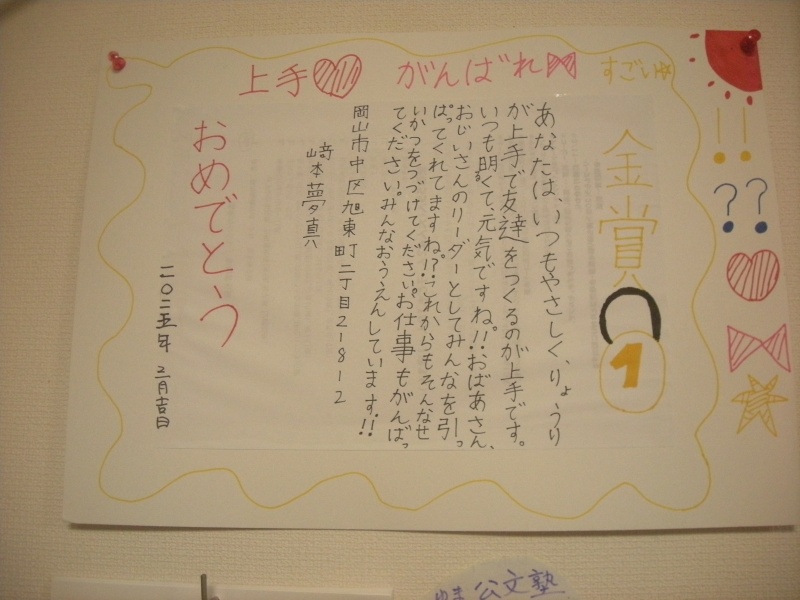 上手 がんばれ すごい
金賞
1
あなたは、いつもやさしく、りょうり
が上手で友達をつくるのが上手です。
いつも明るくて、元気ですね!!おばあさん、
おじいさんのリーダーとしてみんなを引っ
ぱってくれてますね!?これからもそんなせ
いかつをつづけてください。お仕事もがんばっ
てください。みんなおうえんしています!!
岡山市中区旭東町二丁目2-8-12
﨑本夢真
おめでとう
二〇二五年 二月吉日
!!
??
公文塾